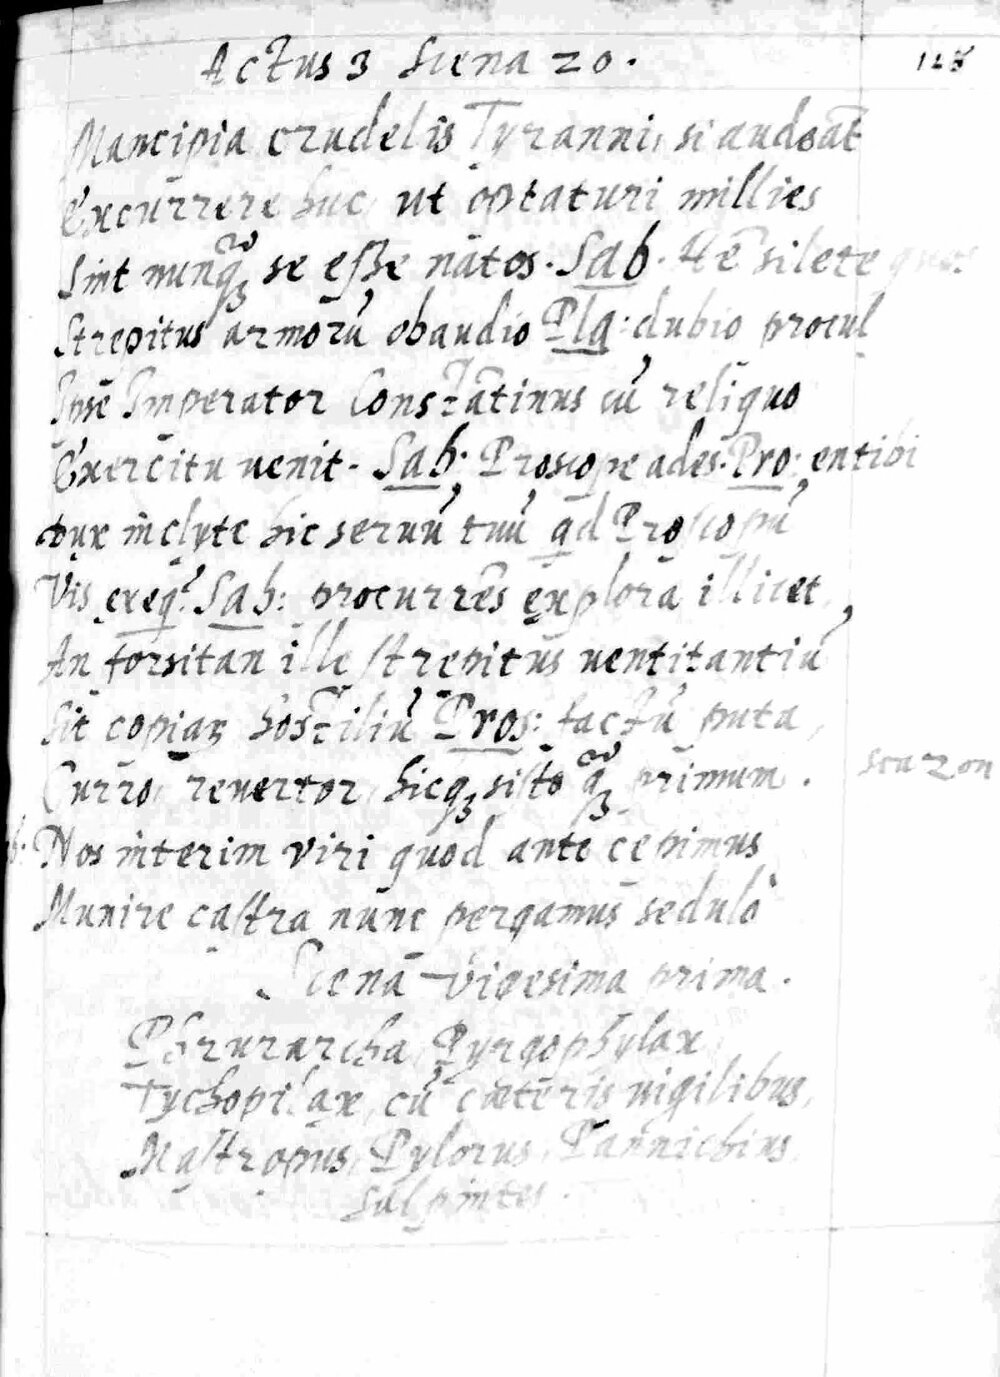 Actus 3 Scena 20.
Mancipia crudelis Tyranni, si audeāt
Excurrere huc, ut optaturi millies
Sint nunꝗ̃ se eſse natos. Sab. He silete
Strepitus armorū obaudio Pla: dubio procul
Ipse Imperator Constātinus cū reliquo
Exercitu uenit. Sab: Proscope ades. Pro: en tibi
Dux inclyte hic seruū tuū qd Proſcopū
Vis exeq? Sab: procurrēs explora illicet,
An forsitan ille ſtrepitus uentitantiū
Sit copiaꝝ hostiliū Pros: factū puta,
Curro, reuertor, hicqꝫ siſto ꝗ̃ primum. scazon
Nos interim viri quod ante cepimus
Munire caſtra nunc pergamus sedulò
Scena vigesima prima.
Phrurarcha, Pyrgophylax,
Tychopilax, cū cæteris uigilibus,
Naſtropus, Pylorus, Pannichius
Salpintes.